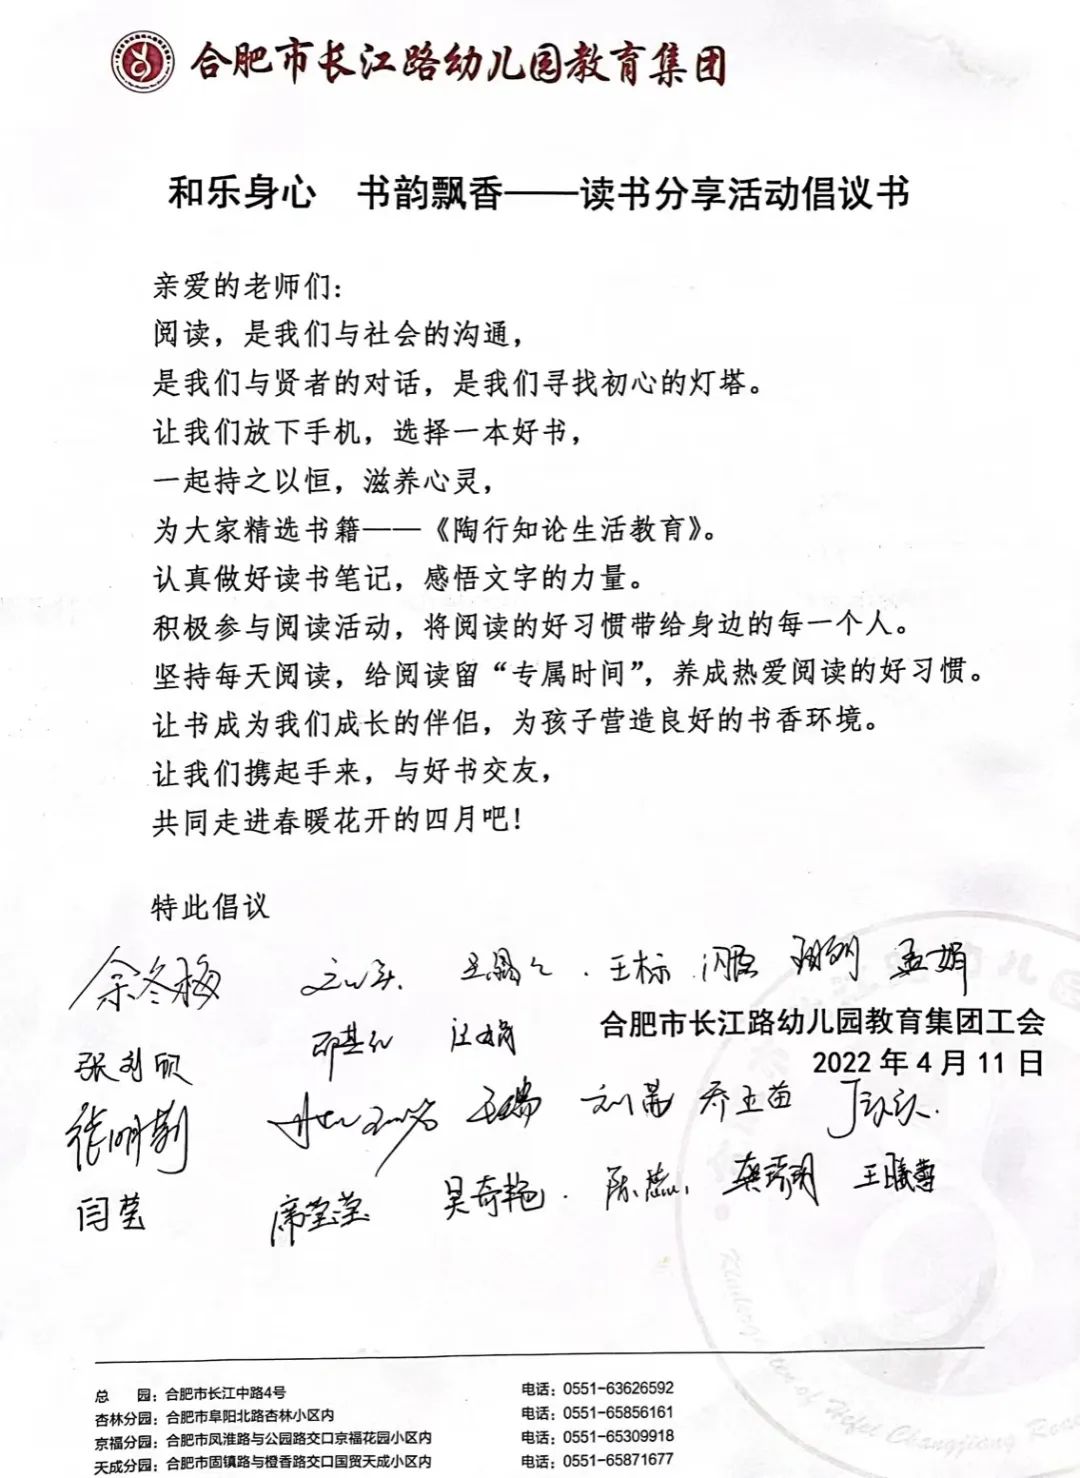 合肥市长江路幼儿园教育集团
和乐身心 书韵飘香——读书分享活动倡议书
亲爱的老师们：
阅读，是我们与社会的沟通，
是我们与贤者的对话，是我们寻找初心的灯塔。
让我们放下手机，选择一本好书，
一起持之以恒，滋养心灵，
为大家精选书籍——《陶行知论生活教育》。
认真做好读书笔记，感悟文字的力量。
积极参与阅读活动，将阅读的好习惯带给身边的每一个人。
坚持每天阅读，给阅读留“专属时间”，养成热爱阅读的好习惯。
让书成为我们成长的伴侣，为孩子营造良好的书香环境。
让我们携起手来，与好书交友，
共同走进春暖花开的四月吧！
特此倡议
余冬梅 王标 孟娟
合肥市长江路幼儿园教育集团工会
2022年4月11日
乔玉苗
闫莹 席莹莹 吴奇艳
总 园：合肥市长江中路4号 电话：0551-63626592
杏林分园：合肥市阜阳北路杏林小区内 电话：0551-65856161
京福分园：合肥市凤淮路与公园路交口京福花园小区内 电话：0551-65309918
天成分园：合肥市固镇路与橙香路交口国贸天成小区内 电话：0551-65871677
of Hefei Changjiang Road